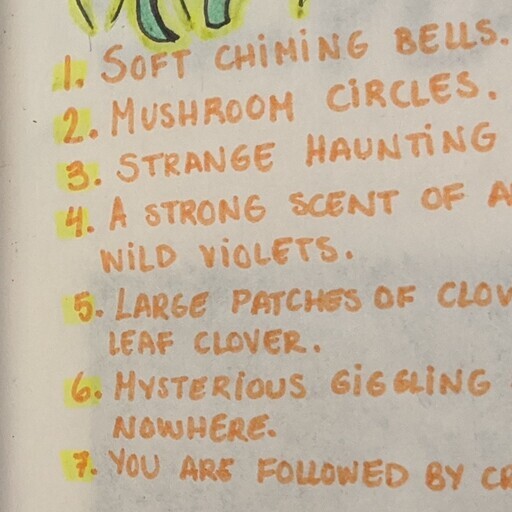 1. SOFT CHIMING BELLS.
2. MUSHROOM CIRCLES.
3. STRANGE HAUNTING
4. A STRONG SCENT OF
WILD VIOLETS.
5. LARGE PATCHES OF CLOV
LEAF CLOVER.
6. MYSTERIOUS GIGGLING
NOWHERE.
7. YOU ARE FOLLOWED BY CR